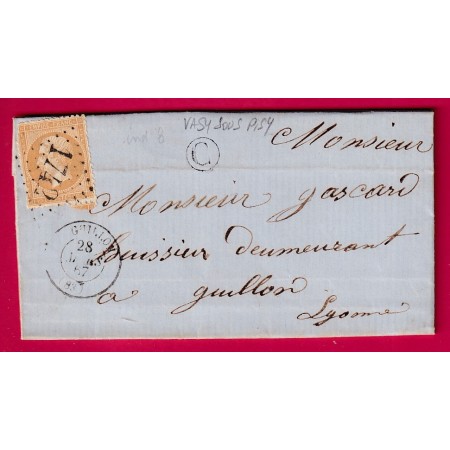 VASY SOUS PISY
ind 8
C
1742
GUILLON
28
67
Monsieur
Monsieur gascard
huissier deumeurant
a guillon
Lyonne